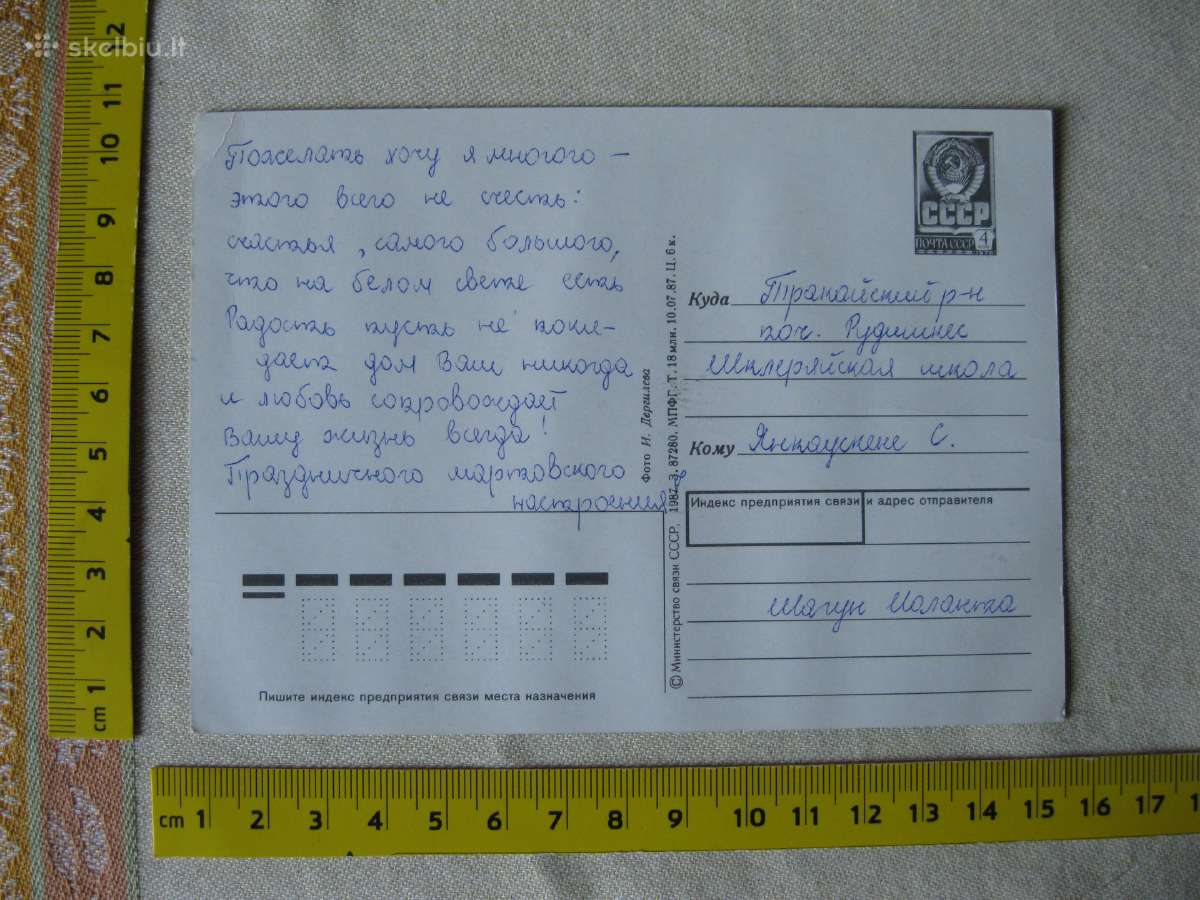 skelbiu.lt
Пожелать хочу я многого –
этого всего не счесть:
счастья, самого большого,
что на белом свете есть
Радость пусть не поки-
дает дом Ваш никогда
и любовь сопровождает
Вашу жизнь всегда!
Праздничного мартовского
настроения
Пишите индекс предприятия связи места назначения
Фото И. Дергилева
© Министерство связи СССР. 1987. З. 87280. МПФГ. Т. 18 млн. 10.07.87. Ц. 6 к.
СССР
ПОЧТА СССР 4
Куда Тракайский р-н
поч. Рудишкес
Шклеряйская школа
Кому Янкаускене С.
Индекс предприятия связи и адрес отправителя
Шагун Иоланта
cm 1 2 3 4 5 6 7 8 9 10 11 12
cm 1 2 3 4 5 6 7 8 9 10 11 12 13 14 15 16 17